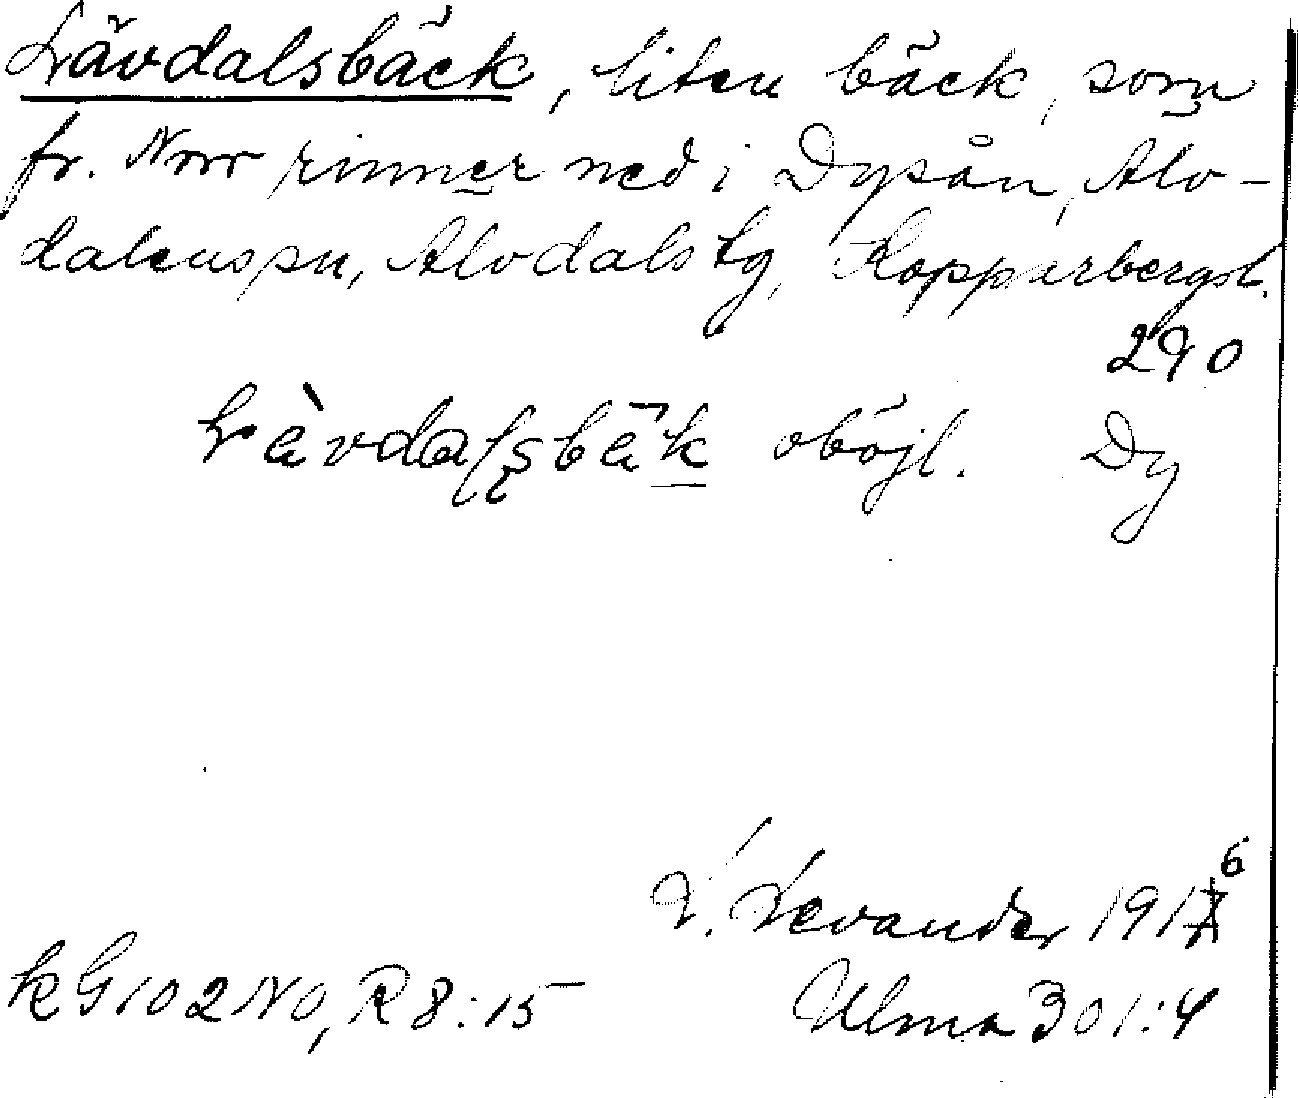 Lävdalsbäck, liten bäck, som
fr. Norr rinner ned i Dysån, Älv-
dalens sn, Älvdals tg, Kopparbergs l.
290
Lävdalsbäk oböjl. Dy
L. Levander 1916
kG102NO, R8:15 Ulma 301:4